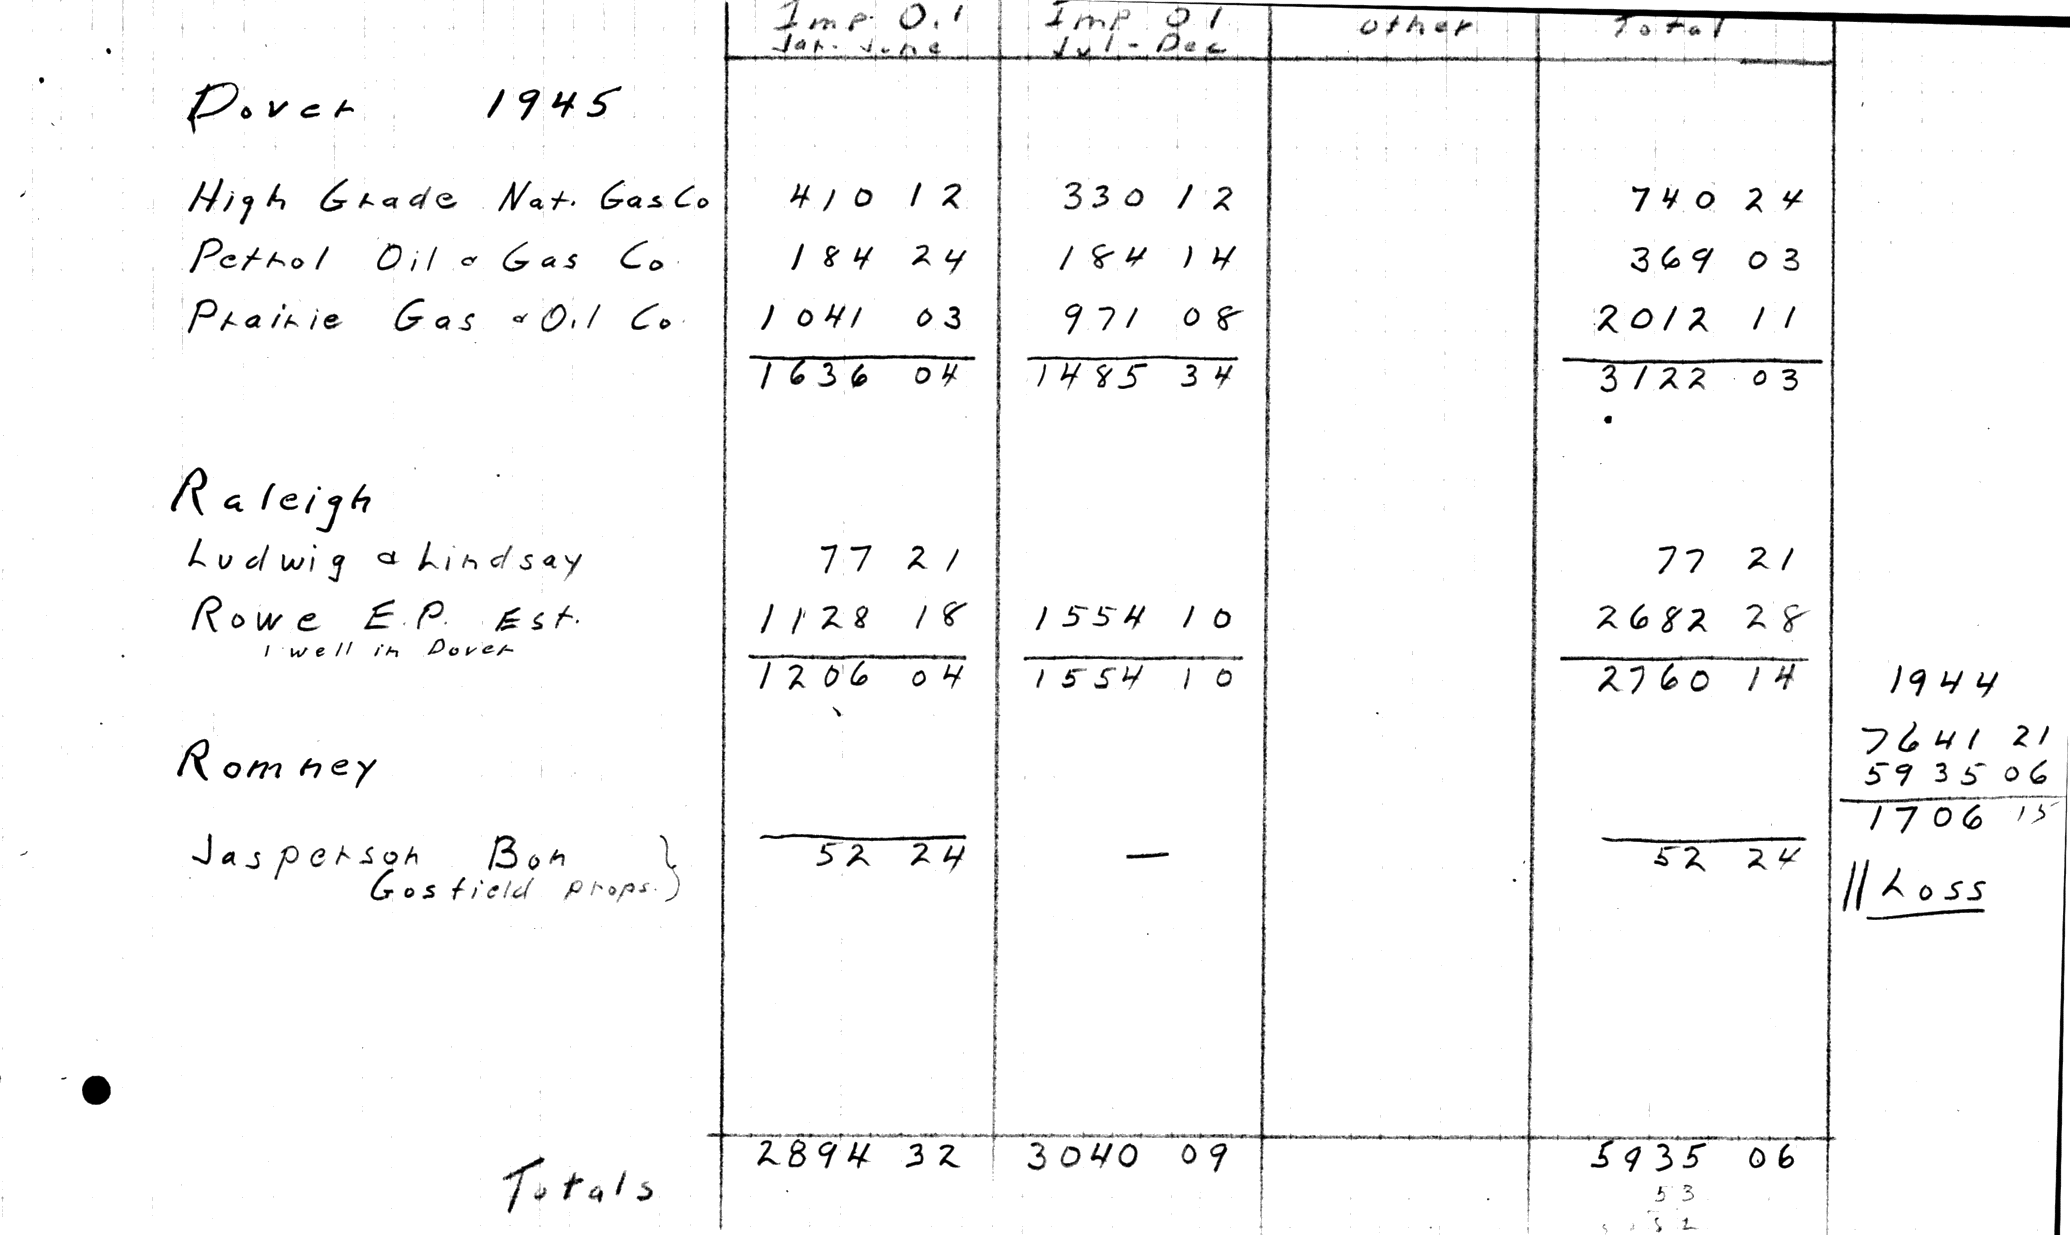 Imp. Oil Imp Oil Other Total
Jan. June Jul - Dec
Dover 1945
High Grade Nat. Gas Co 410 12 330 12 740 24
Petrol Oil & Gas Co. 184 24 184 14 369 03
Prairie Gas & Oil Co. 1041 03 971 08 2012 11
1636 04 1485 34 3122 03
Raleigh
Ludwig & Lindsay 77 21 77 21
Rowe E.P. Est. 1128 18 1554 10 2682 28
1 well in Dover
1206 04 1554 10 2760 14 1944
7641 21
Romney 5935 06
1706 15
Jasperson Bon } 52 24 — 52 24
Gosfield props. Loss
2894 32 3040 09 5935 06
Totals
53